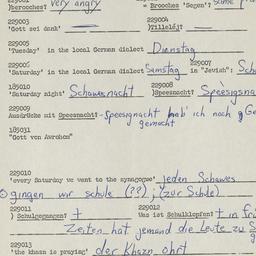 )Berooches? very angry = Brooches 'Segen'? some
229003 229004
'Gott sei dank' )Tilleloj?
229005
'Tuesday' in the local German dialect Dienstag
229006 229007
'Saturday' in the local German dialect Samstag in "Jewish":
185010 229008
'Saturday night' Schawesnacht )Speesnacht? Speesignacht
229009
Ausdrücke mit Speesnacht? - Speesignacht hab' ich noch
gemacht
185031
"Gott von Avrohom"
229010
'every Saturday we went to the synagogue' jeden Schawes
gingen wir schule (??), (zur Schule)
229011 229012
) Schulgegangen? + Was ist Schulklopfen? + in
Zeiten hat jemand die Leute zu
229013
'the khazn is praying' der Khazn ohrt